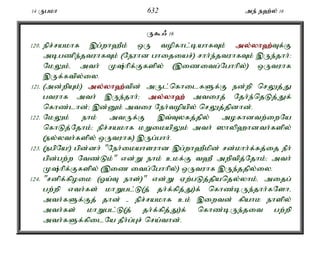 14 ருபமா 632 அந் நஹ்ல் 16
ருகூஃ 16
120. நிச்சயமாக இப்றாஹீம் ஒரு வழிகாட்டியாகவும் அல்லாஹ்வுக்கு
அடிபணிந்தவராகவும் (நேரான பாதையைச்) சார்ந்தவராகவும் இருந்தார்:
மேலும், அவர் முஷ்ரிக்குகளில் (இணைவைப்போரில்) ஒருவராக
இருக்கவில்லை.
121. (அன்றியும்) அல்லாஹ்வின் அருட்கொடைகளுக்கு நன்றி செலுத்து
பவராக அவர் இருந்தார்; அல்லாஹ் அவரைத் தேர்ந்தெடுத்துக்
கொண்டான்; இன்னும் அவரை நேர்வழியில் செலுத்தினான்.
122. மேலும் நாம் அவருக்கு இவ்வுலகத்தில் அழகானவற்றையே
கொடுத்தோம்; நிச்சயமாக மறுமையிலும் அவர் ஸாலிஹானவர்களில்
(நல்லவர்களில் ஒருவராக) இருப்பார்.
123. (நபியே!) பின்னர் "நேர்மையாளரான இப்றாஹீமின் சன்மார்க்கத்தை நீர்
பின்பற்ற வேண்டும்" என்று நாம் உமக்கு வஹீ அறிவித்தோம்; அவர்
முஷ்ரிக்குகளில் (இணை வைப்போரில்) ஒருவராக இருந்ததில்லை.
124. "சனிக்கிழமை (ஓய்வு நாள்)" என்று ஏற்படுத்தியதெல்லாம், அதைப்
பற்றி எவர்கள் மாறுபட்டு(த் தர்க்கித்து)க் கொண்டிருந்தார்களோ,
அவர்களுக்குத் தான் - நிச்சயமாக உம் இறைவன் கியாம நாளில்
அவர்கள் மாறுபட்டு(த் தர்க்கித்து)க் கொண்டிருந்தவை பற்றி
அவர்களுக்கிடையே தீர்ப்புச் செய்வான்.